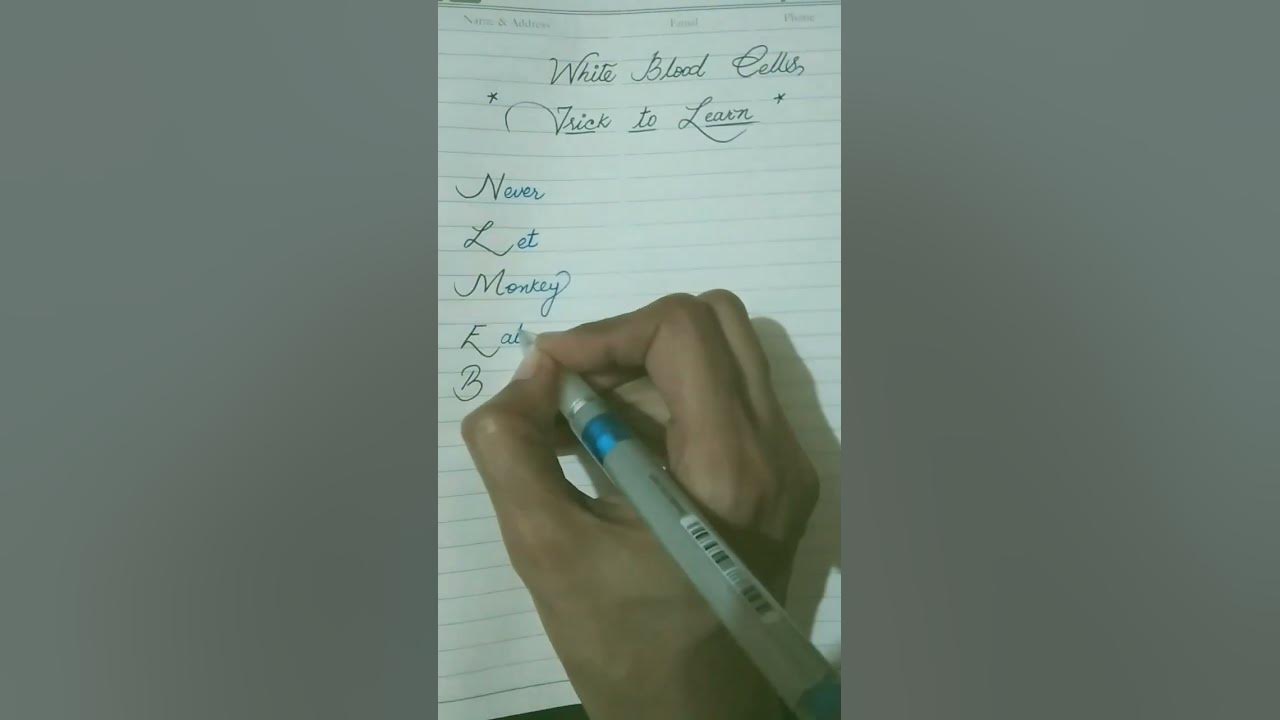 Name & Address Email Phone
White Blood Cells
* Trick to Learn *
Never
Let
Monkey
Eat
B